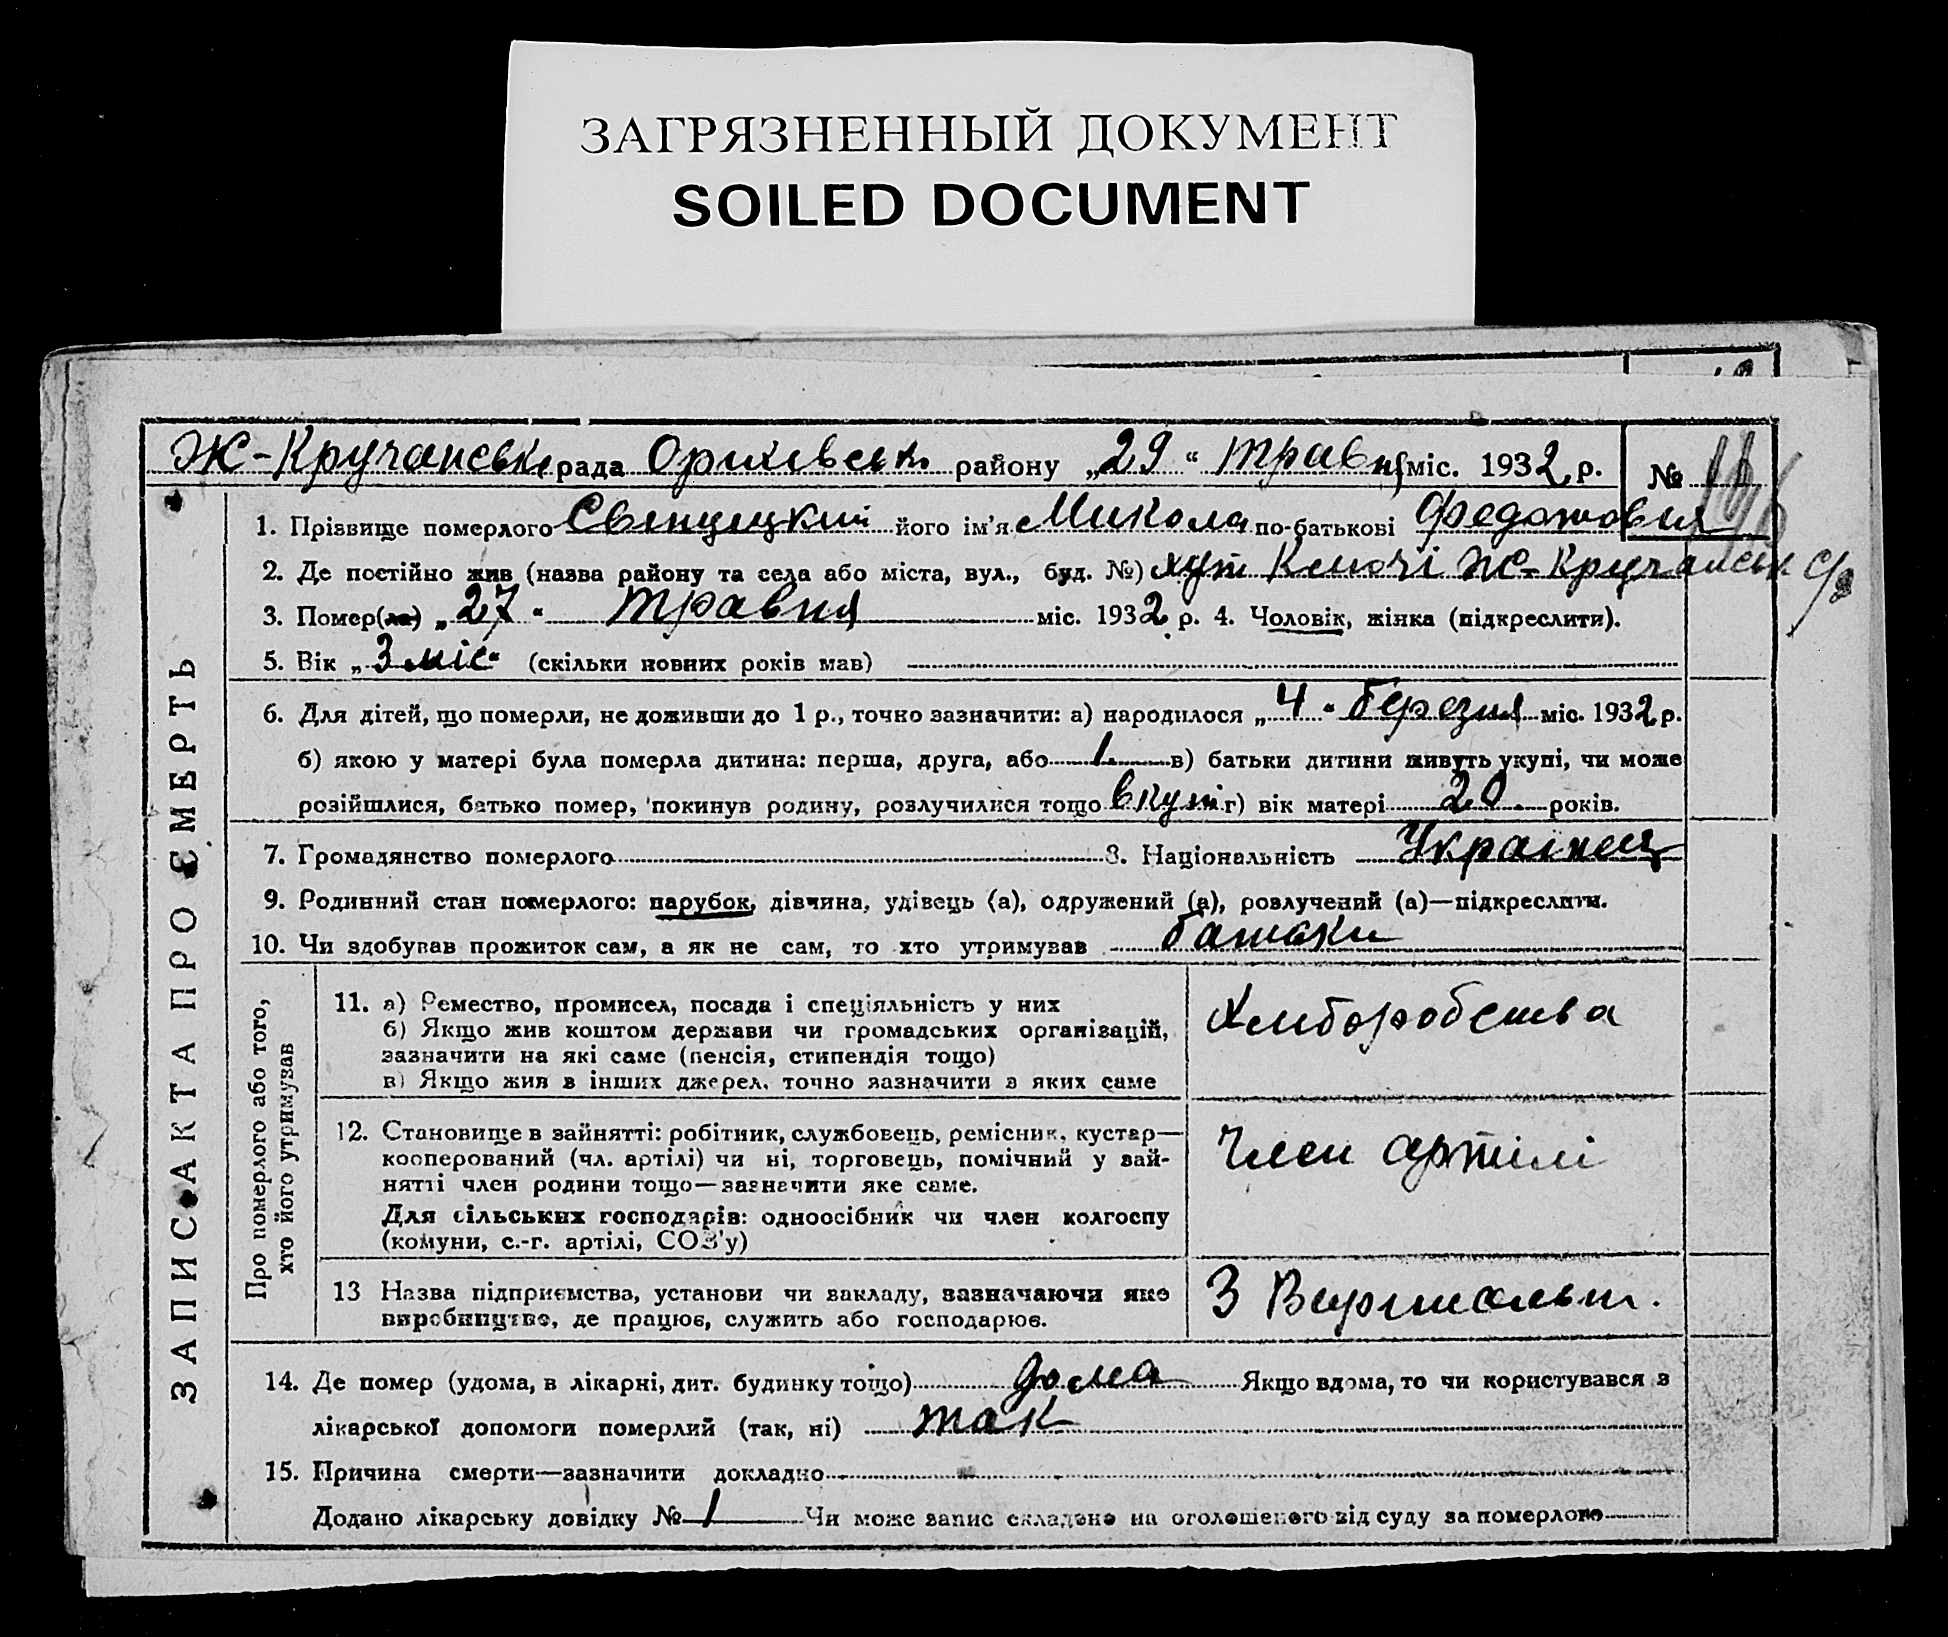 ЗАГРЯЗНЕННЫЙ ДОКУМЕНТ
SOILED DOCUMENT
Ж-Кручанське рада Орихівськ. району „29“ травня міс. 1932 р. № 11
1. Прізвище померлого Свенцицкий його ім'я Микола по-батькові Федотовия
2. Де постійно жив (назва району та села або міста, вул., буд. №) хут Ключі Ж-Кручанськ с/р
3. Помер(ла) „27“ травня міс. 1932 р. 4. Чоловік, жінка (підкреслити).
5. Вік „3 міс“ (скільки повних років мав)
6. Для дітей, що померли, не доживши до 1 р., точно зазначити: а) народилося „4“ березня міс. 1932 р.
б) якою у матері була померла дитина: перша, друга, або 1. в) батьки дитини живуть укупі, чи може
розійшлися, батько помер, покинув родину, розлучилися тощо вкупі г) вік матері 20. років.
7. Громадянство померлого 8. Національність Українец
9. Родинний стан померлого: парубок, дівчина, удівець (а), одружений (а), розлучений (а)—підкреслити.
10. Чи здобував прожиток сам, а як не сам, то хто утримував батьки
ЗАПИС АКТА ПРО СМЕРТЬ
Про померлого або того,
хто його утримував
11. а) Ремество, промисел, посада і спеціяльність у них
б) Якщо жив коштом держави чи громадських організацій,
зазначити на які саме (пенсія, стипендія тощо)
в) Якщо жив з інших джерел, точно зазначити з яких саме
Хліборобства
12. Становище в зайнятті: робітник, службовець, ремісник, кустар—
кооперований (чл. артілі) чи ні, торговець, помічний у зай-
нятті член родини тощо—зазначити яке саме.
Для сільських господарів: одноосібник чи член колгоспу
(комуни, с.-г. артілі, СОЗ'у)
Член артілі
13 Назва підприємства, установи чи закладу, зазначаючи яке
виробництво, де працює, служить або господарює.
З
14. Де помер (удома, в лікарні, дит. будинку тощо) дома Якщо вдома, то чи користувався з
лікарської допомоги померлий (так, ні) так
15. Причина смерти—зазначити докладно
Додано лікарську довідку № 1 Чи може запис складено на оголошеного від суду за померлого